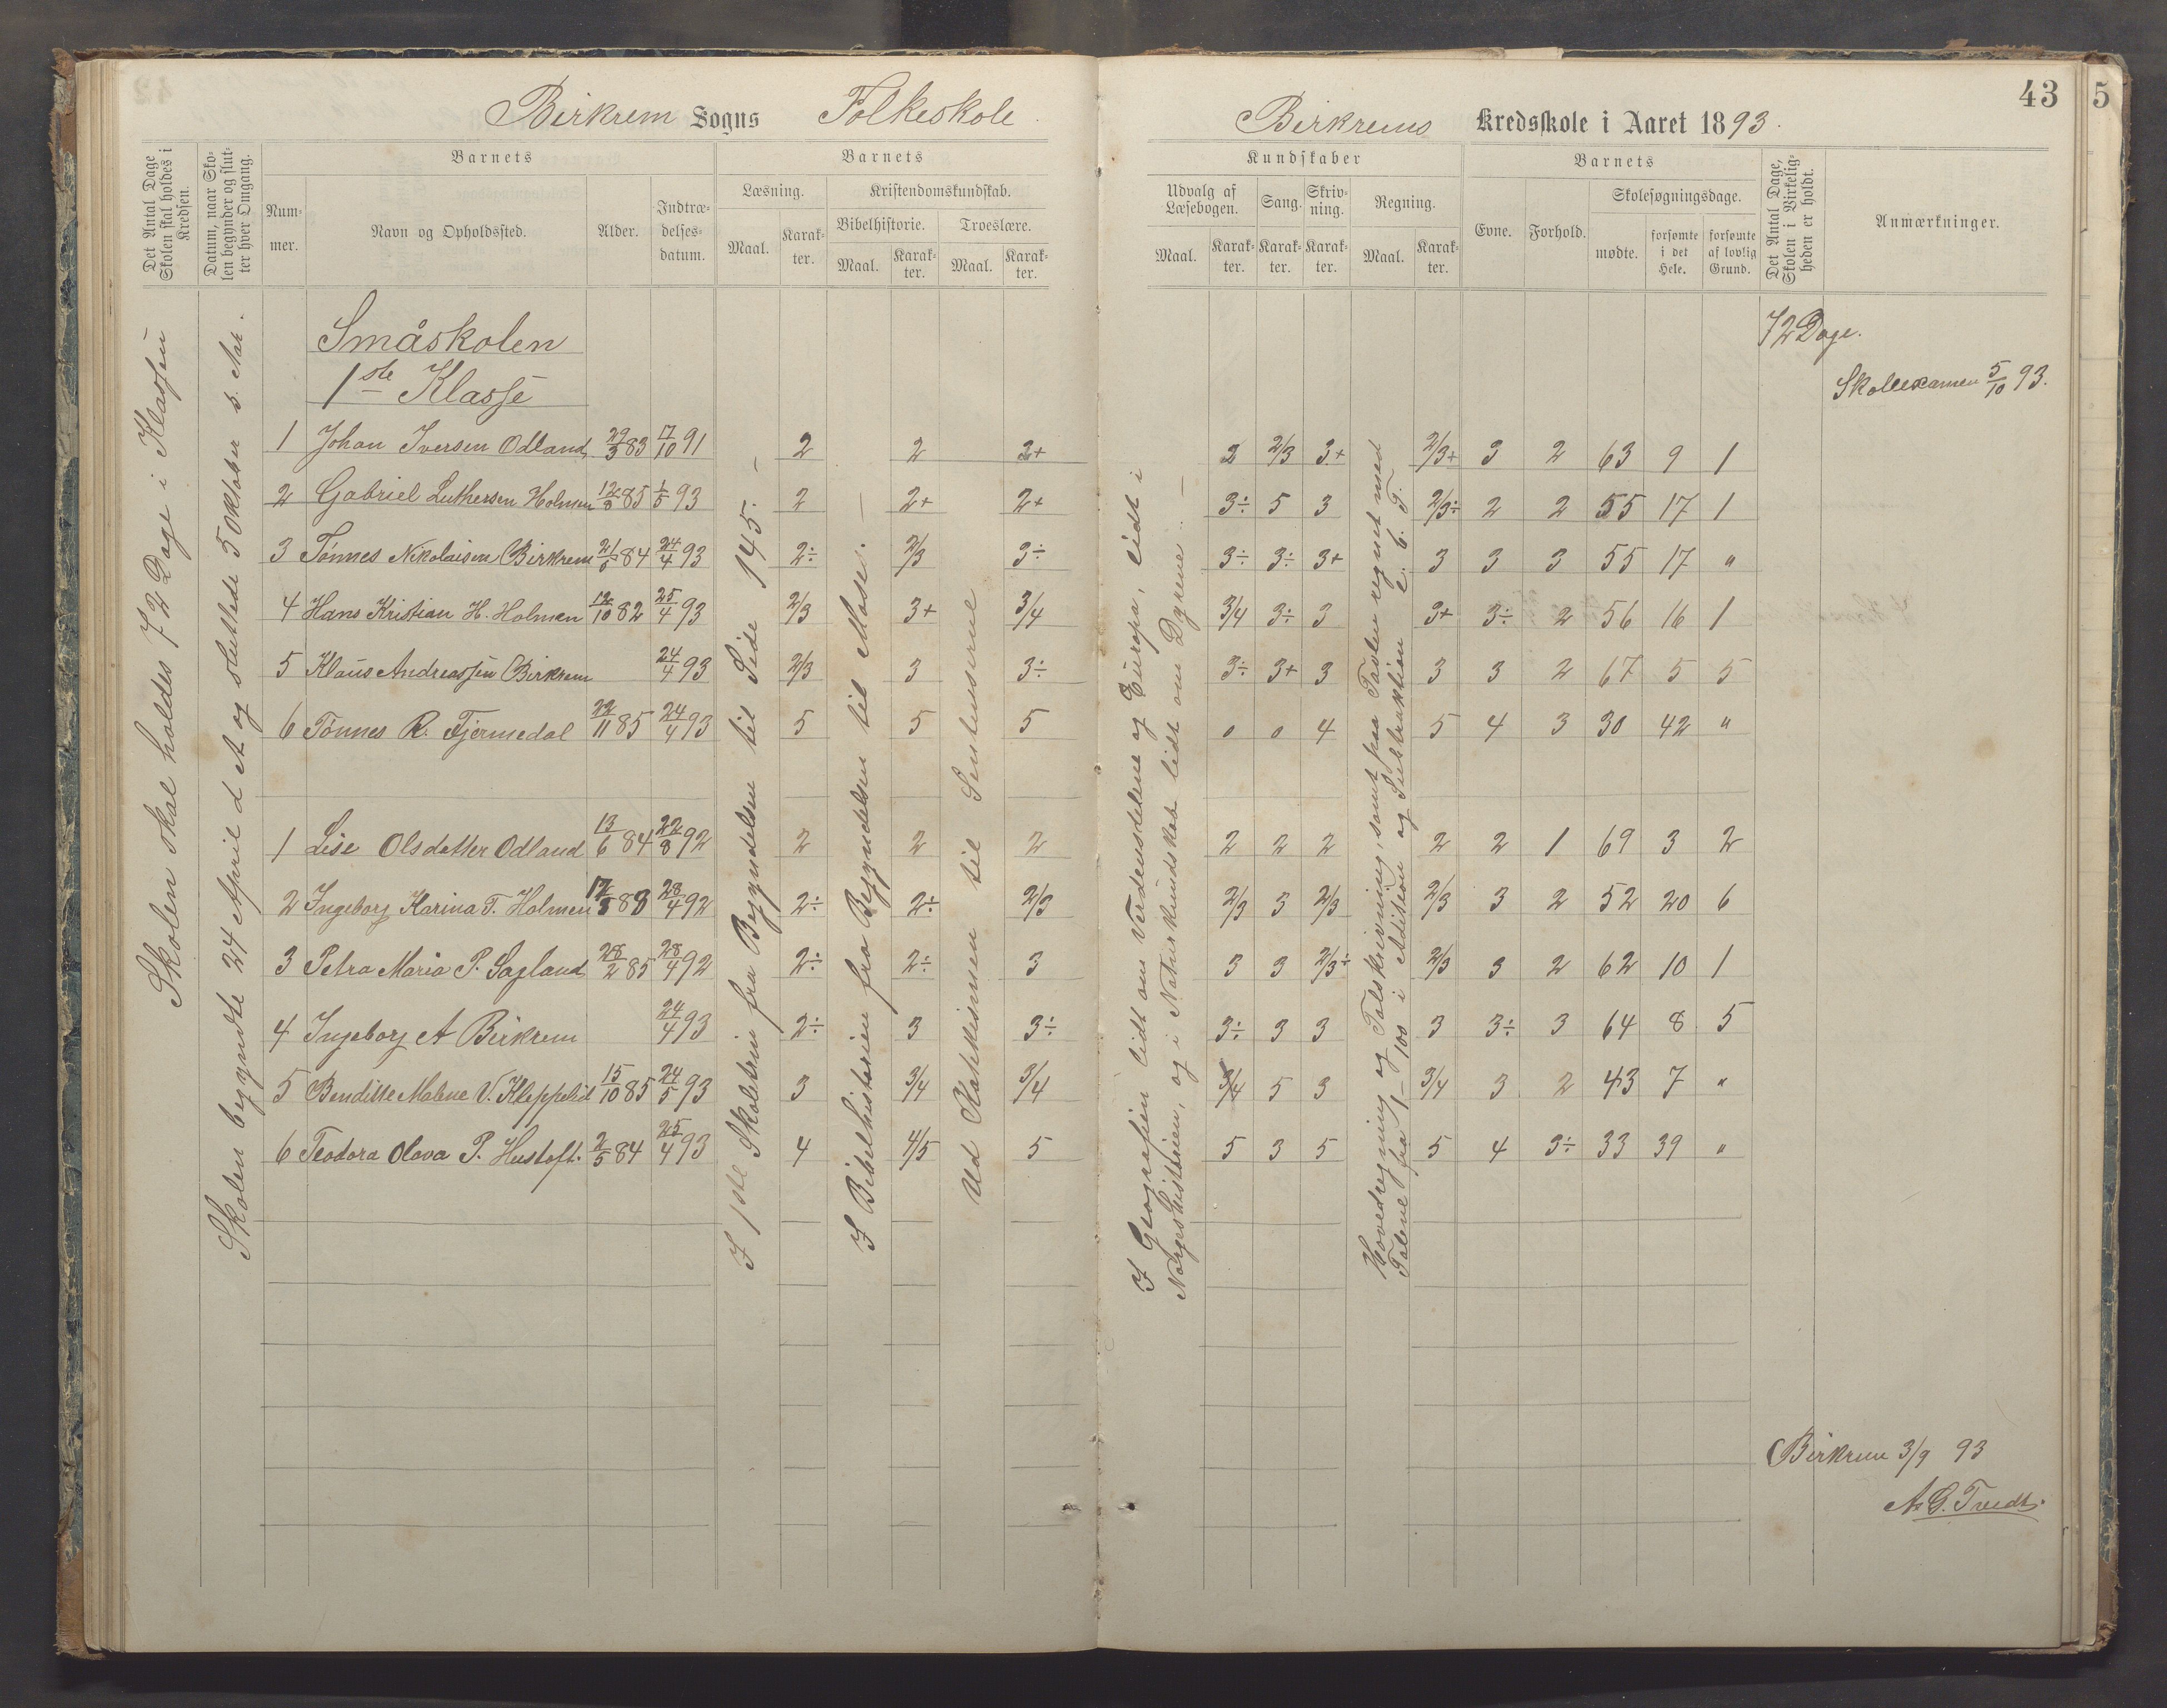 Birkrem Sogns Folkeskole.
Det Antal Dage Skolen skal holdes i Kredsen.
Datum, naar Skolen begynder og slutter hver Omgang.
Barnets
Nummer.
Navn og Opholdssted.
Alder.
Indtrædelsesdatum.
Barnets
Læsning.
Maal.
Karakter.
Kristendomskundskab.
Bibelhistorie.
Maal.
Karakter.
Troeslære.
Maal.
Karakter.
Skolen skal holdes 72 Dage i Klassen
Skolen begyndte 24 April d A og sluttede 5 Oktober s. Aar.
Småskolen
1ste Klasse
1 Johan Iversen Odland 29/3 83 17/10 91 2 2 2+
2 Gabriel Luthersen Holmen 12/8 85 1/5 93 2 2+ 2+
3 Tönnes Nikolaisen Birkrem 84 24/4 93 2÷ 2/3 3÷
4 Hans Kristian H. Holmen 12/10 82 25/4 93 2/3 3+ 3/4
5 Klaus Andreassen Birkrem 24/4 93 2/3 3 3÷
6 Tönnes R. Fjermedal 22/11 85 24/4 93 5 5 5
1 Lise Olsdatter Odland 13/6 84 22/8 92 2 2 2
2 Ingeborg Karina T. Holmen 83 28/4 92 2÷ 2÷ 2/3
3 Petra Maria P. Sagland 28/2 85 28/4 92 2÷ 2÷ 3
4 Ingeborg A Birkrem 24/4 93 2÷ 3 3÷
5 Benditte Malene V. Kleppelid 15/10 85 24/5 93 3 3/4 3/4
6 Teodora Olava P. Hustoft. 2/5 84 25/4 93 4 4/5 5
I 1ste Skoletrin fra Begyndelsen til Side 145. —
I Bibelhistorien fra Begyndelsen til Mose. —
Ud Katekismen til Sentenserne
43
5
Birkrems Kredsskole i Aaret 1893.
Kundskaber
Udvalg af Læsebogen.
Maal.
Karakter.
Sang.
Karakter.
Skrivning.
Karakter.
Regning.
Maal.
Karakter.
Barnets
Evne.
Forhold.
Skolesøgningsdage.
mødte.
forsømte i det Hele.
forsømte af lovlig Grund.
Det Antal Dage, Skolen i Virkeligheden er holdt.
Anmærkninger.
72 Dage.
Skoleexamen 5/10 93.
I Geografien lidt om Verdensdelene og Europa, lidt i
Norgeshistorien, og i Naturkundskab lidt om Dyrene. —
Hovedregning og Talskrivning, samt paa Tavlen regnet med
Talene fra 1–100 i Addition og Subtraktion
2 2/3 3+ 2/3+ 3 2 63 9 1
3÷ 5 3 2/3÷ 2 2 55 17 1
3÷ 3÷ 3+ 3 3 3 55 17 "
3/4 3÷ 3 3+ 3÷ 2 56 16 1
3÷ 3+ 3 3 3 2 67 5 5
0 0 4 5 4 3 30 42 "
2 2 2 2 2 1 69 3 2
2/3 3 2/3 2/3 3 2 52 20 6
3 3 2/3÷ 2/3 3 2 62 10 1
3÷ 3 3 3 3÷ 3 64 8 5
3/4 5 3 3/4 3 2 43 7 "
5 3 5 5 4 3÷ 33 39 "
Birkrem 3/9 93
A. G. Tvedt.